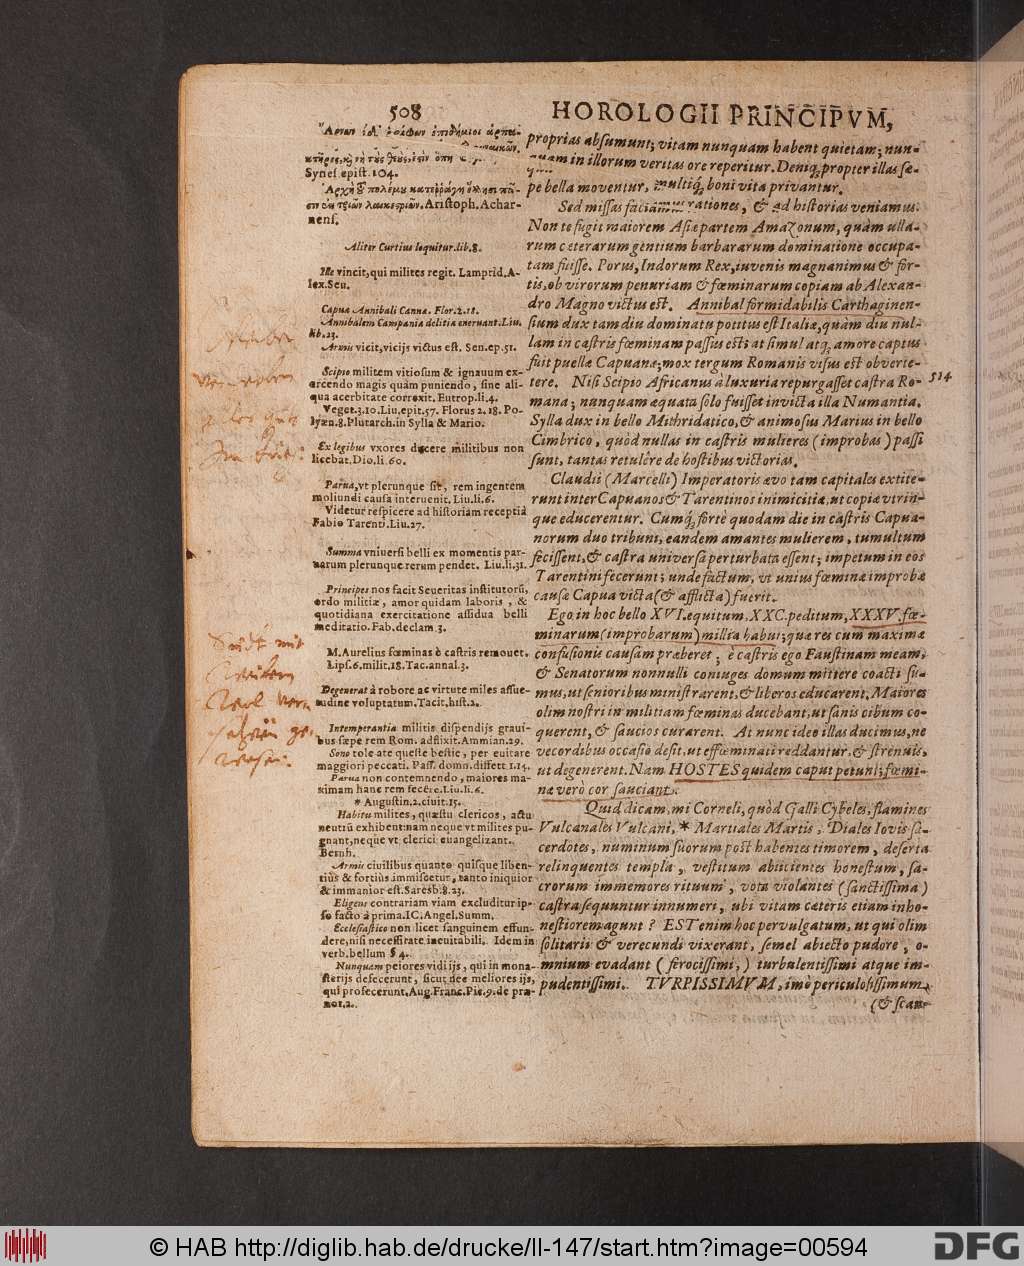 508
HOROLOGII PRINCIPVM,
Synes. epist. 104.
Aristoph. Achar-
nens.
Aliter Curtius loquitur. lib. 8.
Ille vincit, qui milites regit. Lamprid. A-
lex. Seu.
Capua Annibali Canna. Flor. 2. 18.
Annibalem Campaniæ delitiæ eneruant. Liu.
lib. 23.
Armis vicit, vicijs victus est. Sen. ep. 51.
Scipio militem vitiosum & ignauum ex-
ercendo magis quàm puniendo, sine ali-
qua acerbitate correxit. Eutrop. li. 4.
Veget. 3. 10. Liu. epit. 57. Florus 2. 18. Po-
lyæn. 8. Plutarch. in Sylla & Mario.
Ex legibus vxores ducere militibus non
licebat. Dio. li. 60.
Parua, vt plerunque fit, rem ingentem
moliundi causa interuenit. Liu. li. 6.
Videtur respicere ad historiam receptiã
Fabio Tarenti. Liu. 27.
Summa vniuersi belli ex momentis par-
uarum plerunque rerum pendet. Liu. li. 31.
Principes nos facit Seueritas institutorũ,
ordo militiæ, amor quidam laboris, &
quotidiana exercitatione assidua belli
meditatio. Fab. declam. 3.
M. Aurelius fœminas è castris remouet.
Lips. 6. milit. 18. Tac. annal. 3.
Degenerat à robore ac virtute miles assue-
tudine voluptatum. Tacit. hist. 2.
Intemperantia militis dispendijs graui-
bus sæpe rem Rom. adflixit. Ammian. 29.
Sono tole ate queste bestie, per euitare
maggiori peccati. Pass. domn. diffett. 1. 14.
Parua non contemnendo, maiores ma-
ximam hanc rem fecêre. Liu. li. 6.
* Augustin. 2. ciuit. 15.
Habitu milites, quæstu clericos, actu
neutrũ exhibent: nam neque vt milites pu-
gnant, neque vt clerici euangelizant.
Bernh.
Armis ciuilibus quanto quisque liben-
tiùs & fortiùs immiscetur, tanto iniquior
& immanior est. Saresb. 8. 23.
Eligens contrariam viam excluditur ip-
so facto à prima. IC. Angel. Summ.
Ecclesiastico non licet sanguinem effun-
dere, nisi necessitate ineuitabili. Idem in
verb. bellum § 4.
Nunquam peiores vidi ijs, qui in mona-
sterijs defecerunt, sicut nec meliores ijs,
qui profecerunt. Aug. Franc. Pic. 9. de præ-
not. 2.
proprias absumunt; vitam nunquam habent quietam; nun-
quam in illorum veritas ore reperitur. Deniq; propter illas sæ-
pe bella moventur, multiq; boni vita privantur.
Sed missas faciamus rationes, & ad historias veniamus.
Non te fugit maiorem Asiæ partem Amazonum, quàm ulla-
rum cæterarum gentium barbararum dominatione occupa-
tam fuisse. Porus, Indorum Rex, iuvenis magnanimus & for-
tis, ob virorum penuriam & fœminarum copiam ab Alexan-
dro Magno victus est. Annibal formidabilis Carthaginen-
sium dux tam diu dominatu potitus est Italiæ, quàm diu nul-
lam in castris fœminam passus est; at simul atq; amore captus
fuit puellæ Capuanæ; mox tergum Romanis visus est obverte-
tere. Nisi Scipio Africanus à luxuria repurgasset castra Ro-
514
mana; nunquam æquata solo fuisset invicta illa Numantia.
Sylla dux in bello Mithridatico, & animosus Marius in bello
Cimbrico, quòd nullas in castris mulieres (improbas) passi
sunt, tantas retulêre de hostibus victorias.
Claudii (Marcelli) Imperatoris ævo tam capitales extite-
runt inter Capuanos & Tarentinos inimicitiæ, ut copiæ vtrin-
que educerentur. Cumq; fortè quodam die in castris Capua-
norum duo tribuni, eandem amantes mulierem, tumultum
fecissent, & castra universa perturbata essent; impetum in eos
Tarentini fecerunt; unde factum, vt unius fœminæ improbæ
causa Capua victa (& afflicta) fuerit.
Ego in hoc bello XVI. equitum, XXC. peditum, XXXV. fœ-
minarum (improbarum) millia habui; quæ res cum maximæ
confusionis causam præberet; è castris ego Faustinam meam,
& Senatorum nonnulli coniuges domum mittere coacti su-
mus, ut senioribus ministrarent, & liberos educarent. Maiores
olim nostri in militiam fœminas ducebant, ut sanis cibum co-
querent, & saucios curarent. At nunc ideo illas ducimus, ne
vecordibus occasio desit, ut effœminati reddantur, & strenuis,
ut degenerent. Nam HOSTES quidem caput petunt; fœmi-
næ verò cor sauciant.
Quid dicam, mi Corneli, quòd Galli Cybeles, flamines
Vulcanales Vulcani, * Martiales Martis, Diales Iovis sa-
cerdotes, numinum suorum post habentes timorem, deserta
relinquentes templa, vestitum abiicientes honestum, sa-
crorum immemores rituum, vota violantes (sanctissima)
castra sequuntur innumeri, ubi vitam cæteris etiam inho-
nestiorem agunt? EST enim hoc pervulgatum, ut qui olim
solitarii & verecundi vixerant, semel abiecto pudore, o-
mnium evadant (ferocissimi,) turbulentissimi atque im-
pudentissimi. TVRPISSIMVM, imò periculosissimum
(& scan-
© HAB http://diglib.hab.de/drucke/ll-147/start.htm?image=00594
DFG